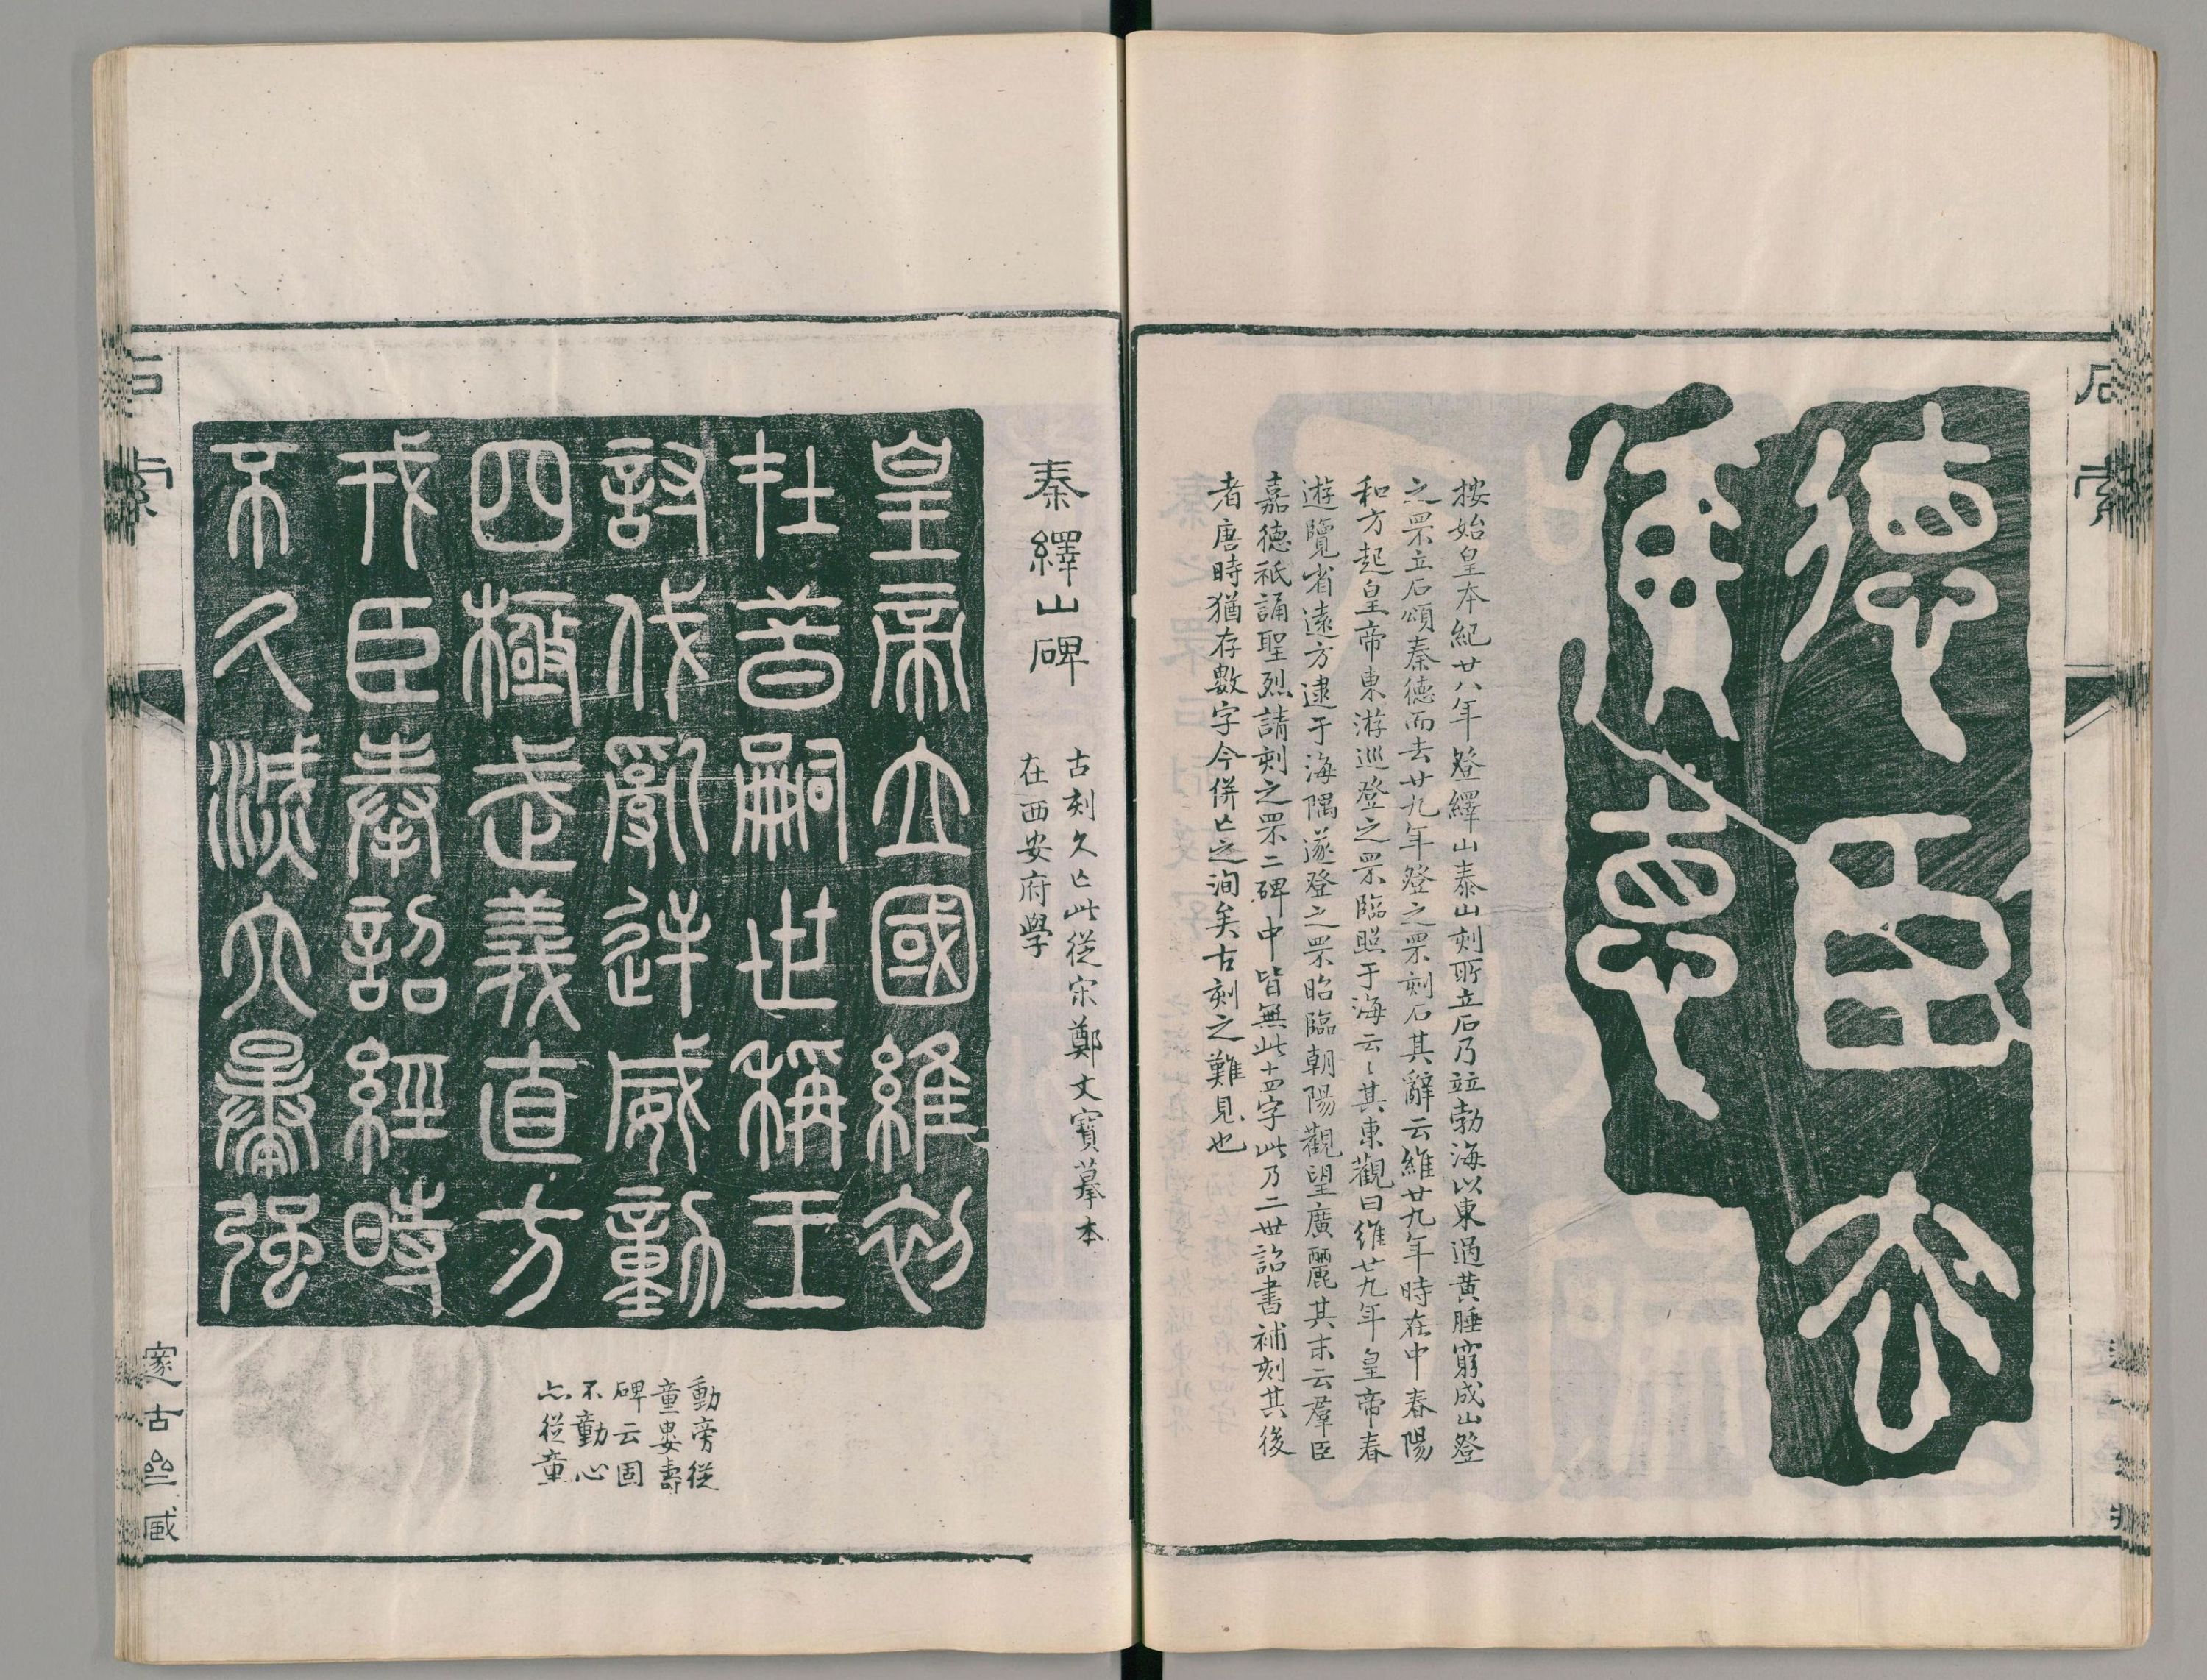 石索
德臣去
按始皇本紀廿八年登繹山泰山刻所立石乃竝勃海以東過黄腄窮成山登
之罘立石頌秦德而去廿九年登之罘刻石其辭云維廿九年時在中春陽
和方起皇帝東游巡登之罘臨照于海云〻其東觀曰維廿九年皇帝春
遊覽省遠方逮于海隅遂登之罘昭臨朝陽觀望廣麗其末云羣臣
嘉德祇誦聖烈請刻之罘二碑中皆無此十四字此乃二世詔書補刻其後
者唐時猶存數字今併亡之洵矣古刻之難見也
秦繹山碑
古刻久亡此從宋鄭文寶摹本
在西安府學
皇帝立國維初
在昔嗣世稱王
討伐亂逆威動
四極武義直方
戎臣奉詔經時
不久滅六暴强
動旁從
童婁壽
碑云固
不動心
亦從童
石索
邃古亝臧